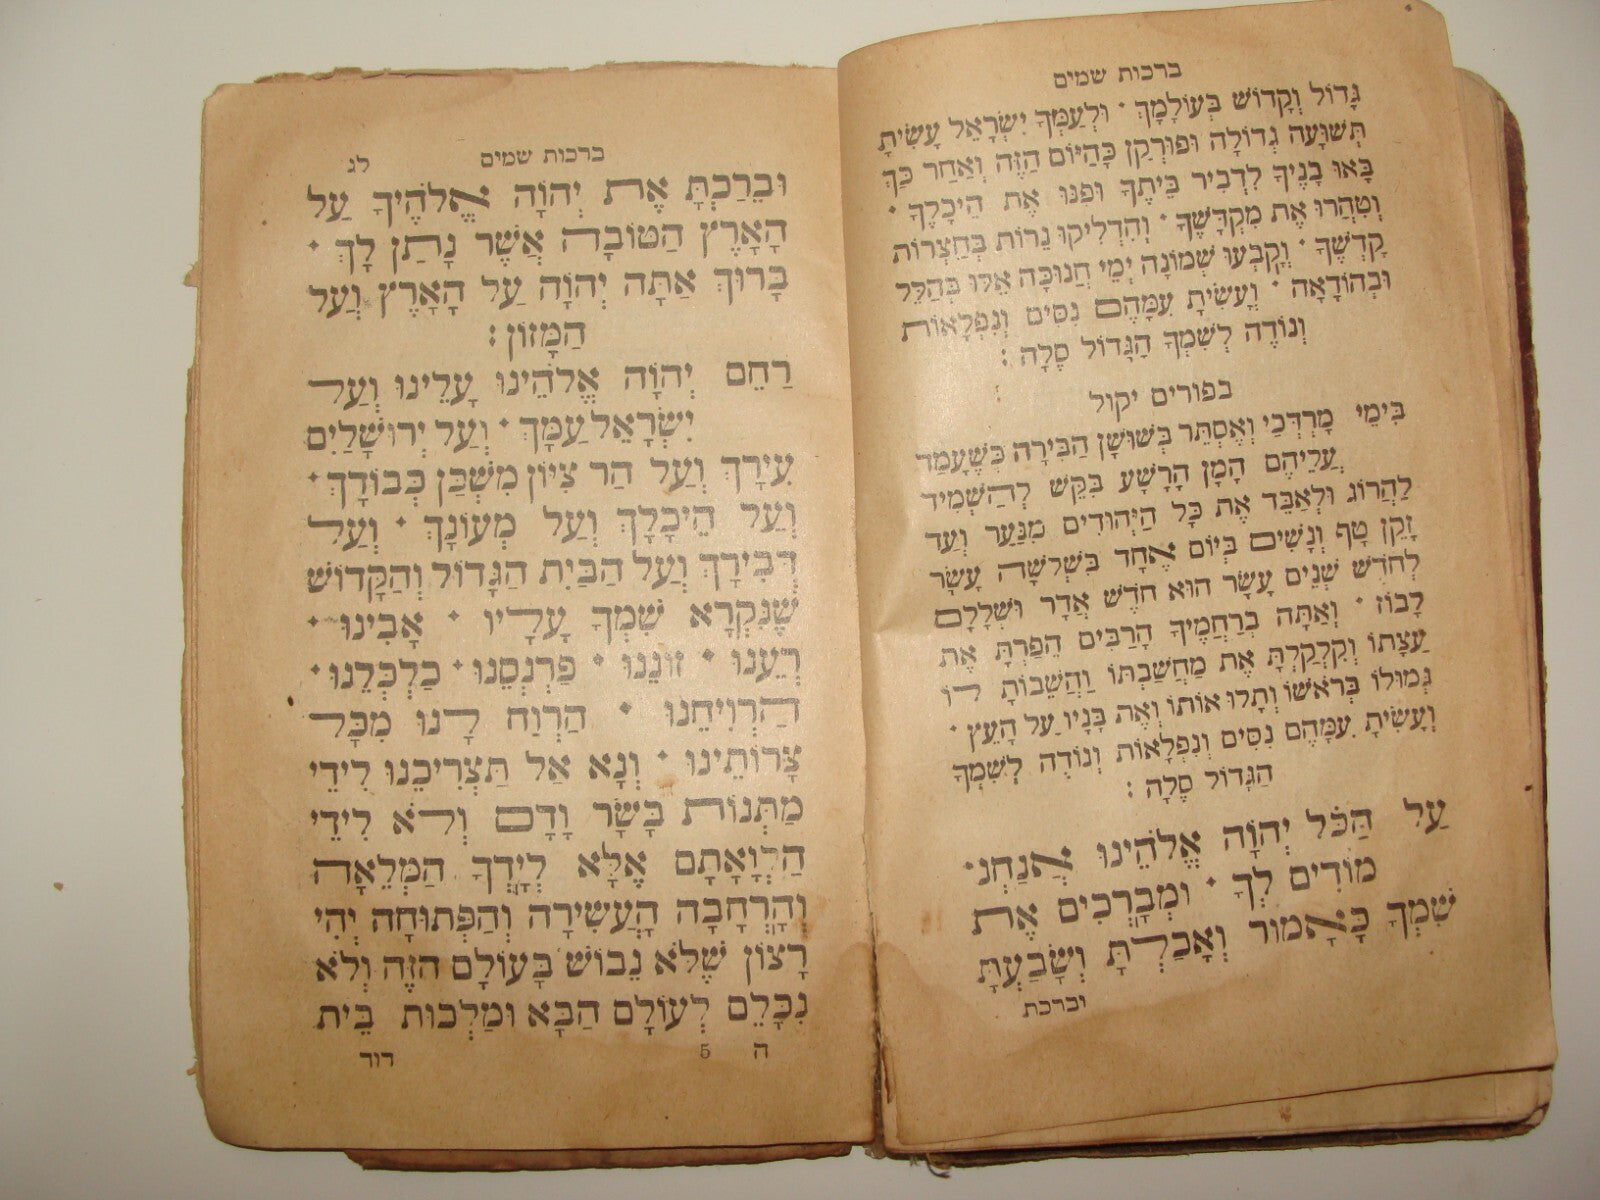 ברכות שמים
גָּדוֹל וְקָדוֹשׁ בְּעוֹלָמֶךָ · וּלְעַמְּךָ יִשְׂרָאֵל עָשִׂיתָ
תְּשׁוּעָה גְדוֹלָה וּפוּרְקַן כְּהַיּוֹם הַזֶּה וְאַחַר כַּךְ
בָּאוּ בָנֶיךָ לִדְבִיר בֵּיתֶךָ וּפִנּוּ אֶת הֵיכָלֶךָ ·
וְטִהֲרוּ אֶת מִקְדָּשֶׁךָ · וְהִדְלִיקוּ נֵרוֹת בְּחַצְרוֹת
קָדְשֶׁךָ · וְקָבְעוּ שְׁמוֹנָה יְמֵי חֲנוּכָּה אֵלּוּ בְּהַלֵּל
וּבְהוֹדָאָה · וְעָשִׂיתָ עִמָּהֶם נִסִּים וְנִפְלָאוֹת
וְנוֹדֶה לְשִׁמְךָ הַגָּדוֹל סֶלָה :
בפורים יקול
בִּימֵי מָרְדְּכַי וְאֶסְתֵּר בְּשׁוּשַׁן הַבִּירָה כְּשֶׁעָמַד
עֲלֵיהֶם הָמָן הָרָשָׁע בִּקֵּשׁ לְהַשְׁמִיד
לַהֲרוֹג וּלְאַבֵּד אֶת כָּל הַיְּהוּדִים מִנַּעַר וְעַד
זָקֵן טַף וְנָשִׁים בְּיוֹם אֶחָד בִּשְׁלֹשָׁה עָשָׂר
לְחֹדֶשׁ שְׁנֵים עָשָׂר הוּא חֹדֶשׁ אֲדָר וּשְׁלָלָם
לָבוֹז · וְאַתָּה בְּרַחֲמֶיךָ הָרַבִּים הֵפַרְתָּ אֶת
עֲצָתוֹ וְקִלְקַלְתָּ אֶת מַחֲשַׁבְתּוֹ וַהֲשֵׁבוֹתָ לוֹ
גְּמוּלוֹ בְּרֹאשׁוֹ וְתָלוּ אוֹתוֹ וְאֶת בָּנָיו עַל הָעֵץ ·
וְעָשִׂיתָ עִמָּהֶם נִסִּים וְנִפְלָאוֹת וְנוֹדֶה לְשִׁמְךָ
הַגָּדוֹל סֶלָה :
עַל הַכֹּל יְהוָֹה אֱלֹהֵינוּ אֲנַחְנוּ
מוֹדִים לָךְ · וּמְבָרְכִים אֶת
שְׁמֶךָ כָּאָמוּר וְאָכַלְתָּ וְשָׂבַעְתָּ
וברכת
ברכות שמים לג
וּבֵרַכְתָּ אֶת יְהוָֹה אֱלֹהֶיךָ עַל
הָאָרֶץ הַטּוֹבָה אֲשֶׁר נָתַן לָךְ ·
בָּרוּךְ אַתָּה יְהוָֹה עַל הָאָרֶץ וְעַל
הַמָּזוֹן :
רַחֵם יְהוָֹה אֱלֹהֵינוּ עָלֵינוּ וְעַל
יִשְׂרָאֵל עַמָּךְ · וְעַל יְרוּשָׁלַיִם
עִירָךְ וְעַל הַר צִיּוֹן מִשְׁכַּן כְּבוֹדָךְ ·
וְעַל הֵיכָלָךְ וְעַל מְעוֹנָךְ · וְעַל
דְּבִירָךְ וְעַל הַבַּיִת הַגָּדוֹל וְהַקָּדוֹשׁ
שֶׁנִּקְרָא שִׁמְךָ עָלָיו · אָבִינוּ ·
רְעֵנוּ · זוֹנֵנוּ · פַּרְנְסֵנוּ · כַּלְכְּלֵנוּ ·
הַרְוִיחֵנוּ · הַרְוַח לָנוּ מִכָּל
צָרוֹתֵינוּ · וְנָא אַל תַּצְרִיכֵנוּ לִידֵי
מַתְּנוֹת בָּשָׂר וָדָם וְלֹא לִידֵי
הַלְוָאָתָם אֶלָּא לְיָדְךָ הַמְּלֵאָה
וְהָרְחָבָה הָעֲשִׁירָה וְהַפְּתוּחָה יְהִי
רָצוֹן שֶׁלֹּא נֵבוֹשׁ בָּעוֹלָם הַזֶּה וְלֹא
נִכָּלֵם לְעוֹלָם הַבָּא וּמַלְכוּת בֵּית
ה 5 דוד